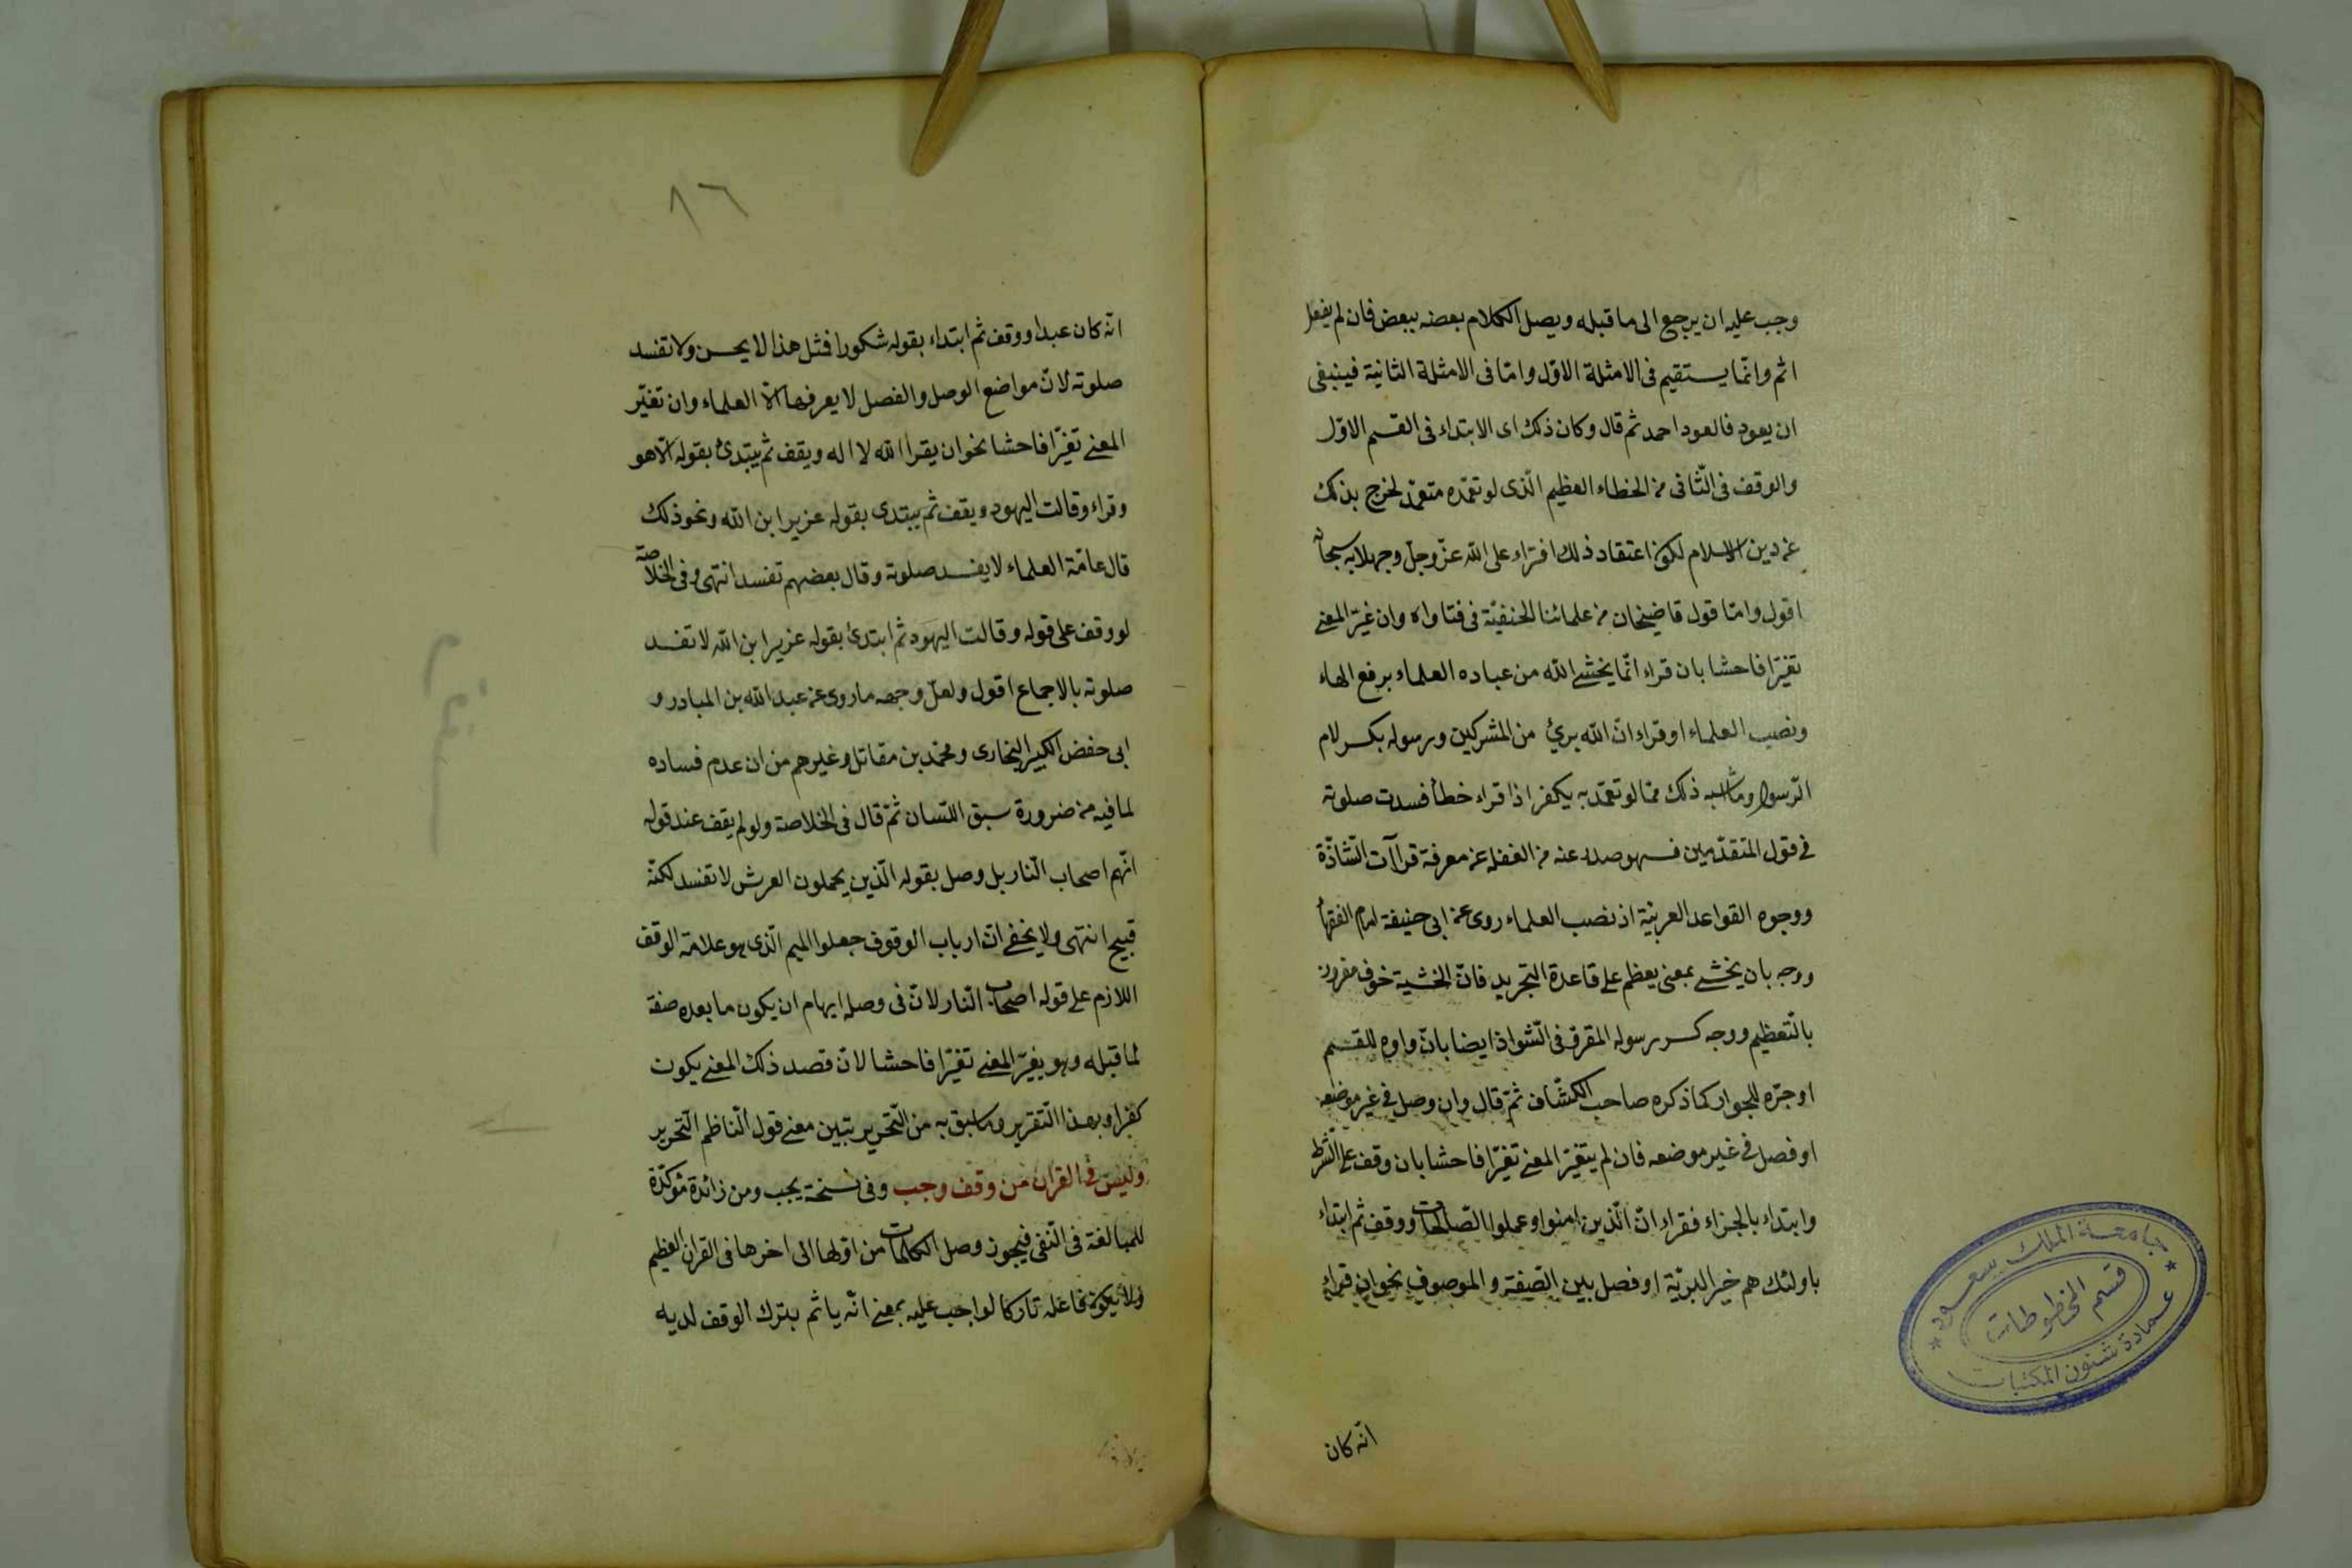 وجب عليه ان يرجع الى ما قبله ويصل الكلام بعضه ببعض فان لم يفعل
اثم وانّما يستقيم فى الامثلة الاوّل وامّا فى الامثلة الثانية فينبغى
ان يعود فالعود احمد ثم قال وكان ذلك اى الابتداء فى القسم الاوّل
والوقف فى الثّانى من الخطاء العظيم الّذى لو تعمّده متعمّد لخرج بذلك
عن دين الاسلام لكون اعتقاد ذلك افتراء على الله عزّ وجلّ وجهلا به سبحانه
اقول وامّا قول قاضيخان من علمائنا الحنفيّة فى فتاواه وان غيّر المعنى
تغيّرا فاحشا بان قراء انّما يخشى الله من عباده العلماء برفع الهاء
ونصب العلماء او قراء انّ الله برئ من المشركين ورسوله بكسر لام
الرّسول وما اشبه ذلك ممّا لو تعمّد به يكفر اذا قراء خطأ فسدت صلوته
فى قول المتقدّمين فسهو صدر عنه من الغفلة عن معرفة قراآت الشّاذّة
ووجوه القواعد العربيّة اذ نصب العلماء روى عن ابى حنيفة امام الفقهاء
ووجه بان يخشى بمعنى يعظم على قاعدة التجريد فانّ الخشية خوف مقرون
بالتّعظيم ووجه كسر رسوله المقرؤ فى الشّواذ ايضا بانّ واوه للقسم
او جرّه للجوار كما ذكره صاحب الكشّاف ثمّ قال وان وصل فى غير موضعه
او فصل فى غير موضعه فان لم يتغيّر المعنى تغيّرا فاحشا بان وقف على الشّرط
وابتداء بالجزاء فقراء انّ الّذين امنوا وعملوا الصّالحات ووقف ثم ابتداء
باولئك هم خير البريّة او فصل بين الصّفة والموصوف نحو ان قراء
انّه كان
جامعة الملك سعود
قسم المخطوطات
عمادة شئون المكتبات
٨٦
انّه كان عبدا ووقف ثم ابتداء بقوله شكورا فمثل هذا لا يحسن ولا تفسد
صلوته لانّ مواضع الوصل والفصل لا يعرفها الّا العلماء وان تغيّر
المعنى تغيّرا فاحشا نحو ان يقرأ الله لا اله ويقف ثم يبتدئ بقوله الّا هو
وقراء وقالت اليهود ويقف ثم يبتدى بقوله عزير ابن الله ونحو ذلك
قال عامّة العلماء لا يفسد صلوته وقال بعضهم تفسد انتهى وفى الخلاصة
لو وقف على قوله وقالت اليهود ثم ابتدئ بقوله عزير ابن الله لا تفسد
صلوته بالاجماع اقول ولعلّ وجهه ما روى عن عبد الله بن المبادر و
ابى حفض الكبير البخارى ومحمّد بن مقاتل وغيرهم من ان عدم فساده
لما فيه من ضرورة سبق اللّسان ثمّ قال فى الخلاصة ولو لم يقف عند قوله
انّهم اصحاب النّار بل وصل بقوله الّذين يحملون العرش لا تفسد لكنّه
قبيح انتهى ولا يخفى انّ ارباب الوقوف جعلوا الميم الّذى هو علامة الوقف
اللازم على قوله اصحاب النّار لانّ فى وصله ايهام ان يكون ما بعده صفة
لما قبله وهو يغيّر المعنى تغيّرا فاحشا لانّ قصد ذلك المعنى يكون
كفرا وبهذا التّقرير وما سبق به من التّحرير يتبين معنى قول النّاظم النّحرير
وليس فى القران من وقف وجب وفى نسخة يجب ومن زائدة مؤكّدة
للمبالغة فى النّفى فيجوز وصل الكلمات من اوّلها الى اخرها فى القران العظيم
ولا يكون فاعله تاركا لواجب عليه بمعنى انّه ياثم بترك الوقف لديه